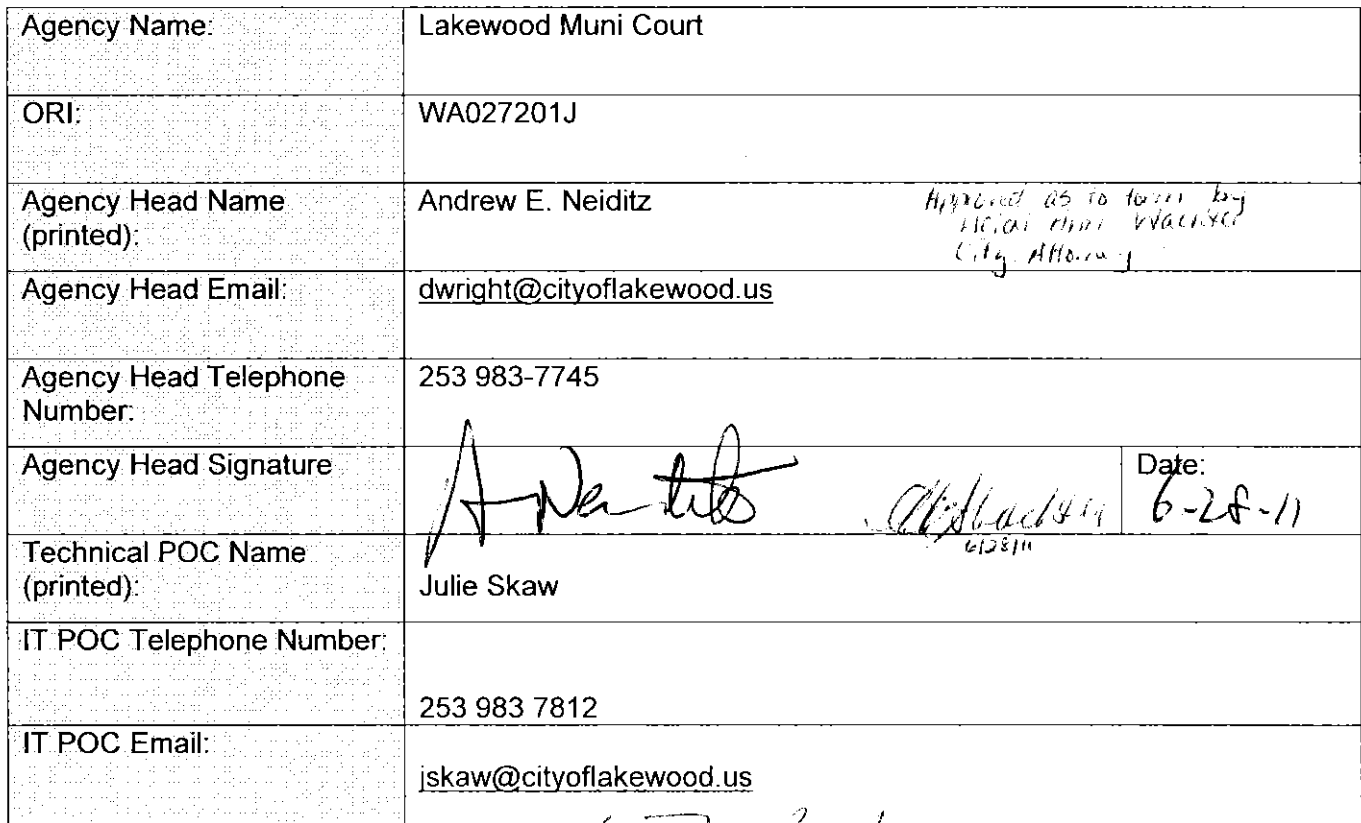 Agency Name: Lakewood Muni Court
ORI: WA027201J
Agency Head Name Andrew E. Neiditz
(printed):
Approved as to form by
City Attorney
Agency Head Email: dwright@cityoflakewood.us
Agency Head Telephone 253 983-7745
Number:
Agency Head Signature Date:
6-28-11
6/28/11
Technical POC Name
(printed): Julie Skaw
IT POC Telephone Number:
253 983 7812
IT POC Email:
jskaw@cityoflakewood.us